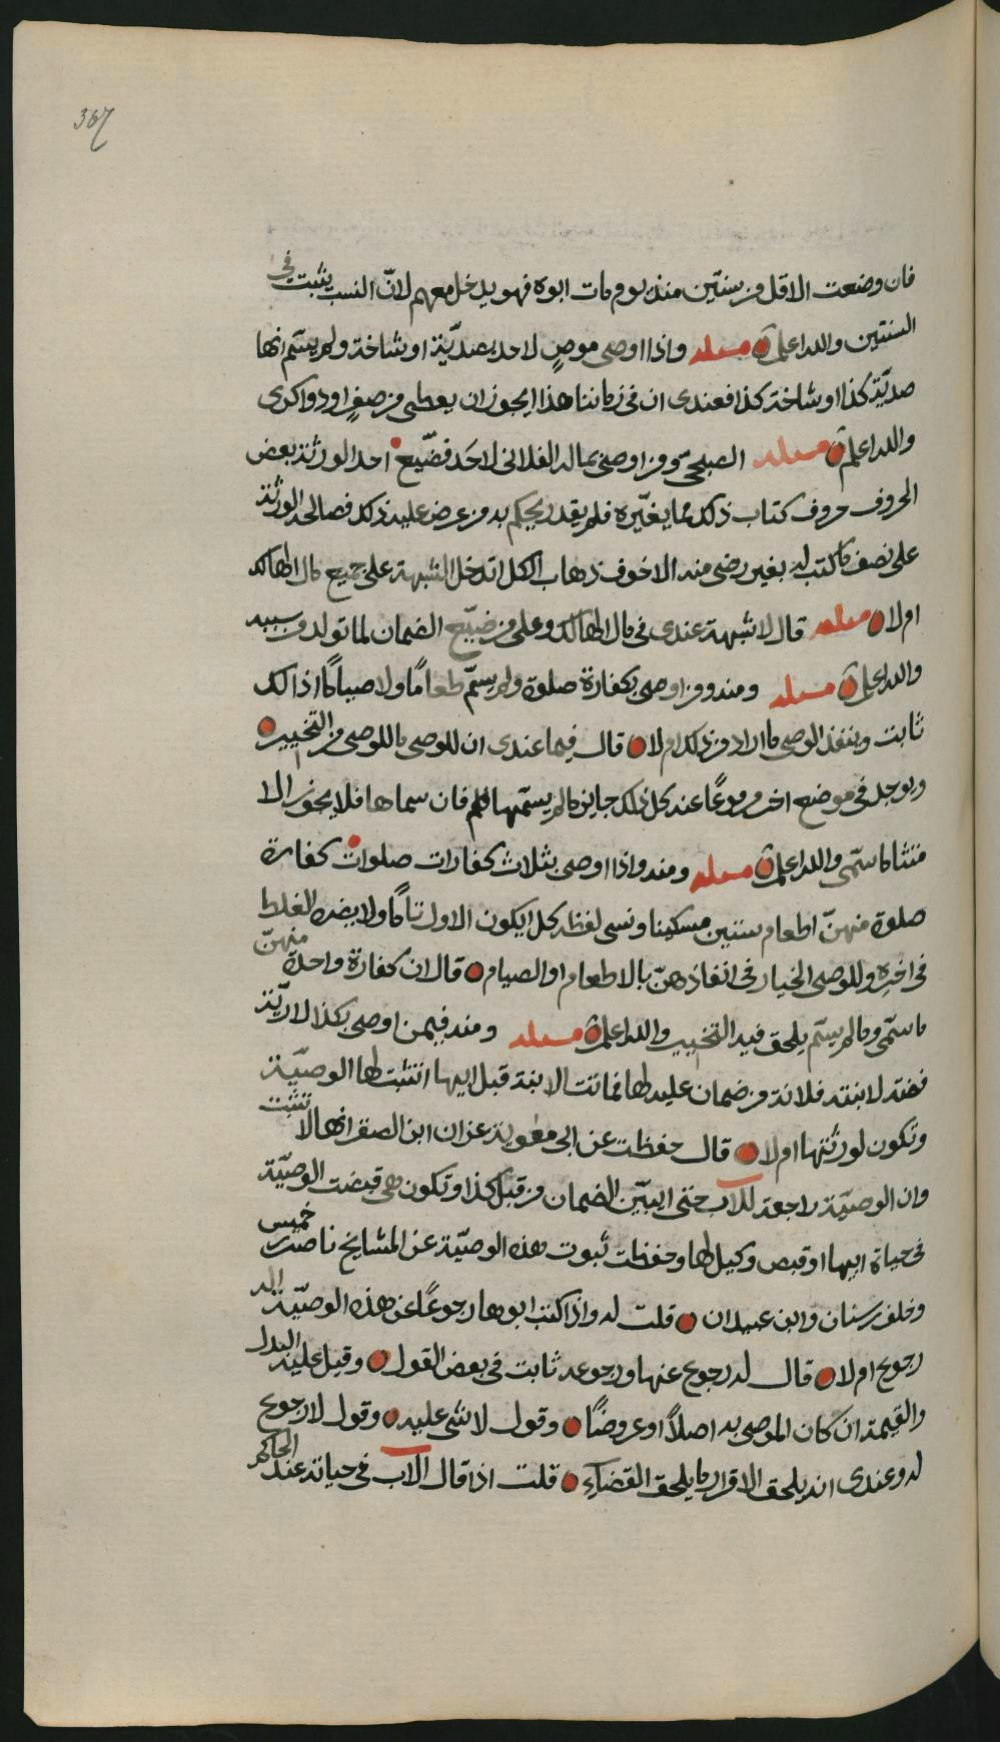 367
فان وضعت الاقل من سنتين منذ يوم مات ابوه فهو يدخل معهم لانّ النسب يثبت في
السنتين والله اعلم مسئلة واذا اوصى موصٍ لاحد بصديّة او شاخة ولم يسّم انها
صديّة كذا او شاخة كذا فعندى ان في زماننا هذا ايجوز ان يعطى من صفرٍ او دواكرى
والله اعلم مسئلة الصبحيّ ومن اوصى بماله الفلانى لاحد فضّيع احد الورثة بعض
الحروف حروف كتاب ذلك مما يغيّره فلم يقدر يحكم به من عرض عليه ذلك فصالحه الورثة
على نصف ما كتب له بغير رضى منه الا خوف ذهاب الكل اتدخل الشبهة على جميع مال الهالك
ام لا مسئلة قال لا شبهة عندى في مال الهالك وعلى من ضيّع الضمان لما تولد من سببه
والله اعلم مسئلة ومنه ومن اوصى بكفارة صلوة ولم يسمّ طعامًا ولا صيامًا اذالك
ثابت وينفذ الوصى ما اراد من ذلك ام لا قال فيما عندى ان للوصى ما للوصى من التخيير
ويوجد في موضع اخر مرفوعًا عند كل ذلك جايز ما لم يسمّها فان سماها فلا يجوز الا
ما سمّى والله اعلم مسئلة ومنه واذا اوصى بثلاث كفارات صلوات كفارة
صلوة منهنّ اطعام ستين مسكينا ونسى لفظ كل ايكون الاول تامًا ولا يضره الغلط
في اخره وللوصى الخيار في انفاذهنّ بالاطعام او الصيام قال ان كفارة واحدة منهنّ
ما سمّى وما لم يسّم يلحق فيه التخيير والله اعلم مسئلة ومنه فيمن اوصى بكذا لاريّة
فضة لابنته فلانة من ضمان عليه لها فماتت الابنة قبل ابيها اتثبت لها الوصيّة
وتكون لورثتها ام لا قال حفظت عن ابى معوية عزان ابن الصقر انها لا تثبت
وان الوصيّة راجعة للاب حتى ايبيّن الضمان من قبل كذا وتكون هى قبضت الوصيّة
في حياة ابيها او قبض وكيل لها وحفظت ثبوت هذه الوصيّة عن المشايخ ناصر بن خميس
وخلف بن سنان وابن عبيدان قلت له واذا كتب ابوها رجوعًا عن هذه الوصيّة اله
رجوع ام لا قال له رجوع عنها ورجوعه ثابت في بعض القول وقيل عليه البدل
والقيمة ان كان الموصى به اصلاً او عروضًا وقول لا شى عليه وقول لا رجوع
له وعندى انه يلحق الاقرار ما يلحق القضاء قلت اذا قال الاب في حياته عند الحاكم